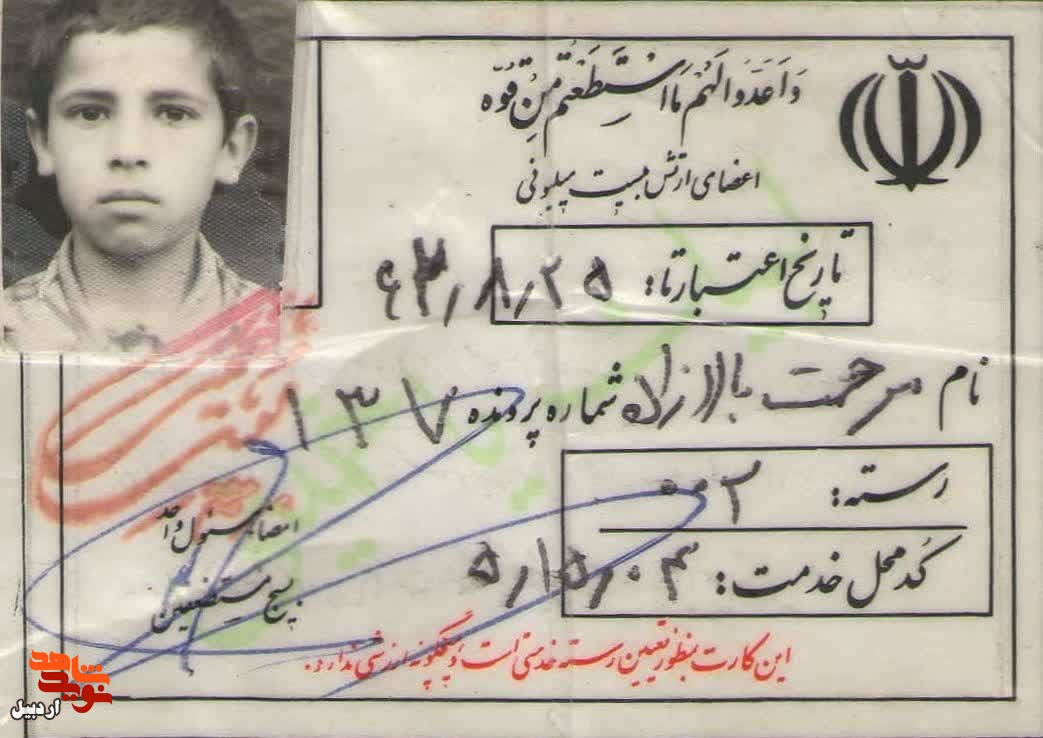 وَاَعَدّوا لَهُم مَا اسْتَطَعْتُم مِن قُوّه
اعضای ارتش بیست میلیونی
تاریخ اعتبار تا: ۶۳٫۸٫۲۵
نام مرحمت بالازاده شماره پرونده ۱۳۷
رسته: ۰۰۲
کُد محل خدمت: ۵٫۱۵٫۰۴
امضاء مسئول واحد
بسیج مستضعفین
این کارت بمنظور تعیین رسته خدمتی است و هیچگونه ارزشی ندارد.
نوید شاهد
اردبیل